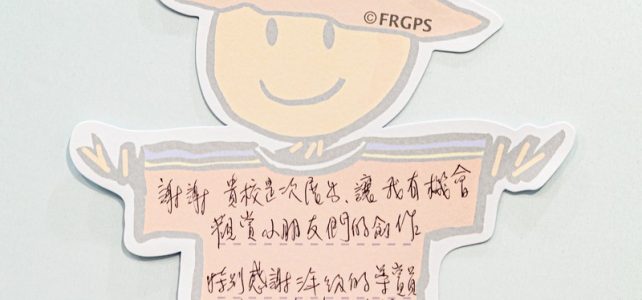 ©FRGPS
謝謝 貴校是次展出、讓我有機會
觀賞小朋友們的創作
特別感謝 年級的學員